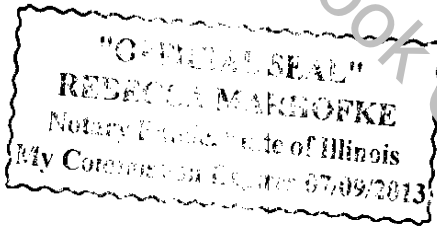 "OFFICIAL SEAL"
REBECCA MARHOFKE
Notary Public, State of Illinois
My Commission Expires 07/09/2013
ook